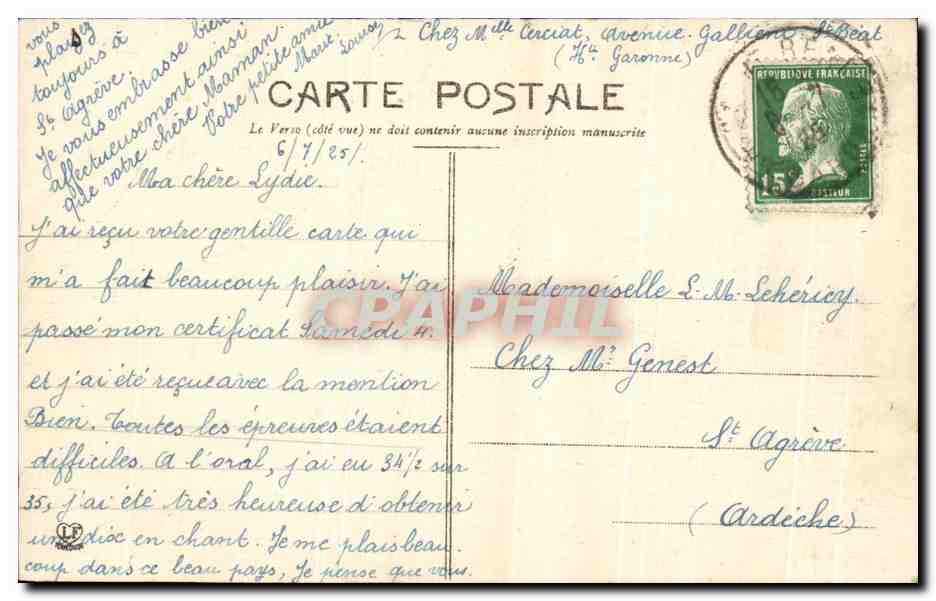 Chez Melle Cerciat, avenue Galliéni St Béat
(Hte Garonne)
CARTE POSTALE
Le Verso (côté vue) ne doit contenir aucune inscription manuscrite
REPUBLIQUE FRANÇAISE
POSTES
15c
PASTEUR
6/7/25/.
Ma chère Lydie.
J'ai reçu votre gentille carte qui
m'a fait beaucoup plaisir. J'ai
passé mon certificat Samedi 4.
et j'ai été reçue avec la mention
Bien. Toutes les épreuves étaient
difficiles. A l'oral, j'ai eu 34 1/2 sur
35, j'ai été très heureuse d'obtenir
un dix en chant. Je me plais beau.
coup dans ce beau pays, Je pense que vous.
vous
plaisez
toujours à
St Agrève.
Je vous embrasse bien
affectueusement ainsi
que votre chère Maman.
Votre petite amie
Marie Louise
LF
Mademoiselle L. M. Lehéricy.
Chez Mr Genest
St Agrève
(Ardèche)
CPAPHIL